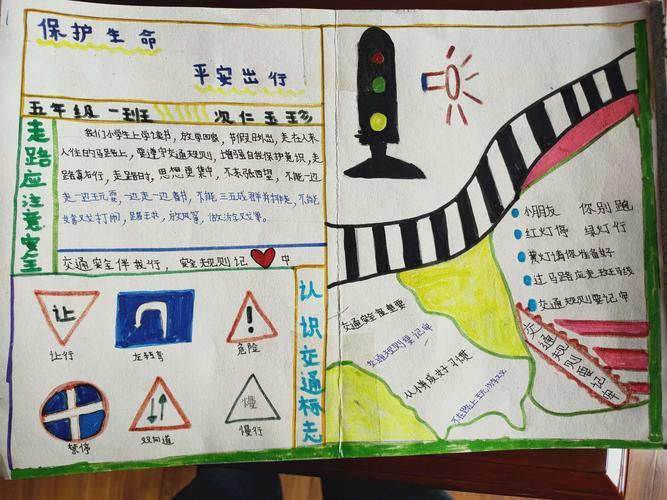 保护生命
平安出行
五年级一班
次仁玉珍
走路应注意安全
我们小学生上学读书，放早回家，节假日外出，走在人来
人往的马路上，要遵守交通规则，增强自我保护意识，走
路靠右行，走路时，思想要集中，不东张西望，不能一边
走一边玩耍，一边走一边看书，不能三五成群并排走，不能
追逐打闹
交通安全伴我行，安全规则记 中
让
让行
左转弯
!
危险
禁停
双向道
慢
慢行
认识交通标志
小朋友 你别跑
红灯停 绿灯行
黄灯请你准备好
过马路应走斑马线
交通规则要记牢
交通安全很重要
交通规则要记牢
从小养成好习惯
不在路上玩游戏
交通规则要记牢